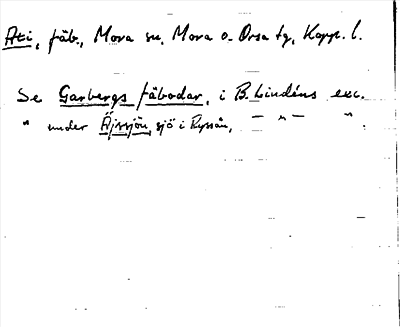 Ati, fäb., Mora sn, Mora o. Orsa tg, Kopp. l.
Se Garbergs fäbodar, i B. Lindéns exc.
" under Äjssjön, sjö i Ryssån, — " — ".